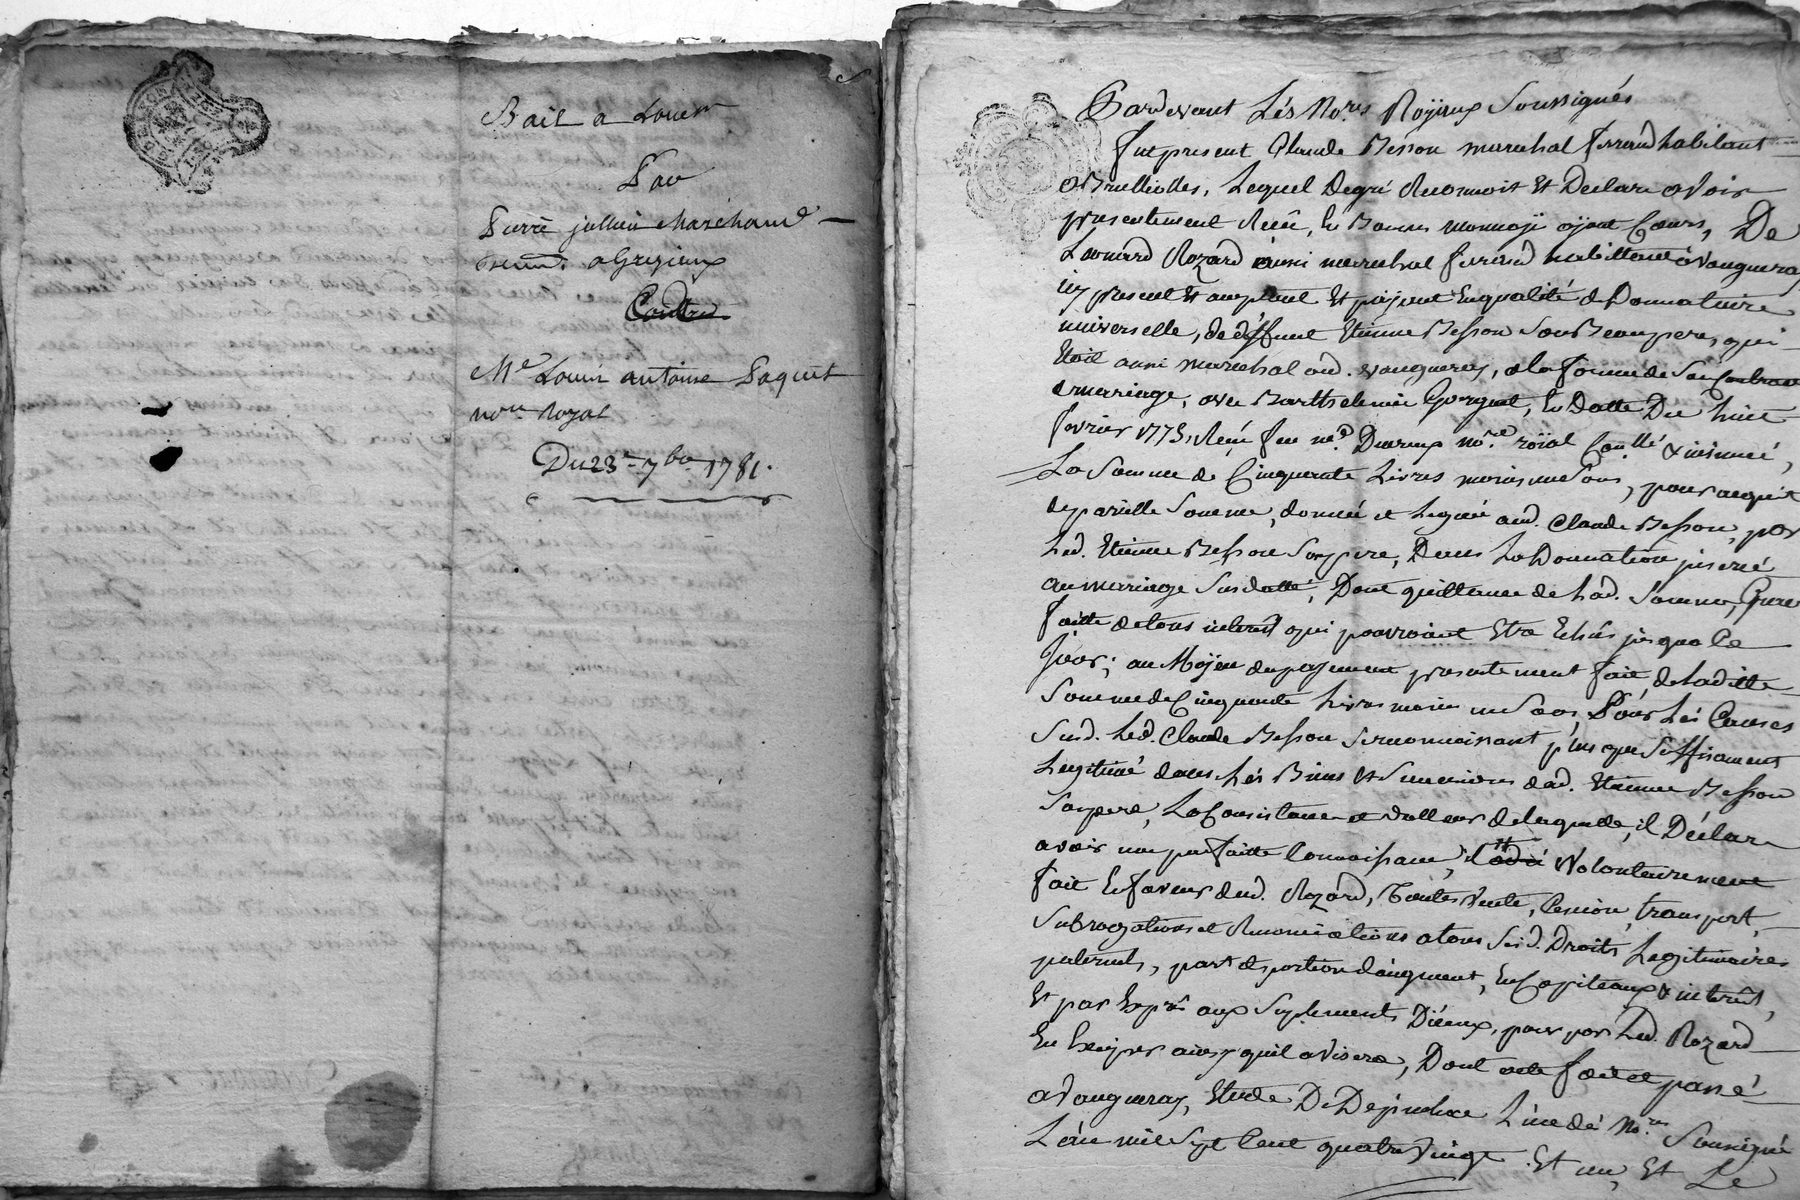 Bail a Louer
Par
Pierre jullien Maréchand
a Grezieux
Contre
Me Louis antoine Paquet
nore Royal
Du 23e 7bre 1781.
Pardevant Lés Nores Royaux Soussignés
fut present Claude Besson marechal ferrand habitant
a Brullioles, Lequel de gré Reconnoit Et Declare avoir
presentement Reçu, En Bonne monnoye ayant Cours, De
Leonard Rozard aussi marechal ferrand habittant a Vaugneray
icy present Et acceptant Et païant En qualité de Donnataire
universelle, de déffunt Etienne Besson Son Beaupere, qui
Etoit aussi marechal aud. vaugneray, a la forme de Son Contract
de mariage, avec Barthelemie, En Datte Du huit
fevrier 1775, Reçu par me. nore. roïal Conllé & insinué,
La Somme de Cinquante Livres moins un Sous, pour acquit
de pareille Somme, donnée et Leguée aud. Claude Besson, par
Led. Etienne Besson Son pere, Dans La Donnation inserée
au mariage Susdatté, Dont quittance de Lad. Somme,
faitte de tous interest qui pourroient Etre Echus jusqua Ce
Jour; au Moyen du payement presentement fait, de Laditte
Somme de Cinquante Livres moins un Sous, Pour Lés Causes
Susd. Led. Claude Besson Se reconnoissant plus que Suffisament
Legitimé dans Lés Biens Et Successions dud. Etienne Besson
Son pere, La Consistance et valleur de laquelle, il Déclare
avoir une parfaitte Connoissance, il a Volontairement
fait En faveur dud. Rozard, Toutes Vente, Cession, transport,
Subrogations et Renonciations a tous Sesd. Droits Legitimaires
paternels, part & portion d'augment, En Capiteaux & interêts,
Et par Exprès aux Suplements D'iceux, pour par Led. Rozard
En Exciper ainsy quil avisera, Dont acte fait et passé
a Vaugneray, Etude De Depinhac L'un dés Nores Soussigné
L'an mil Sept Cent quatre Vingt Et un, Et Le